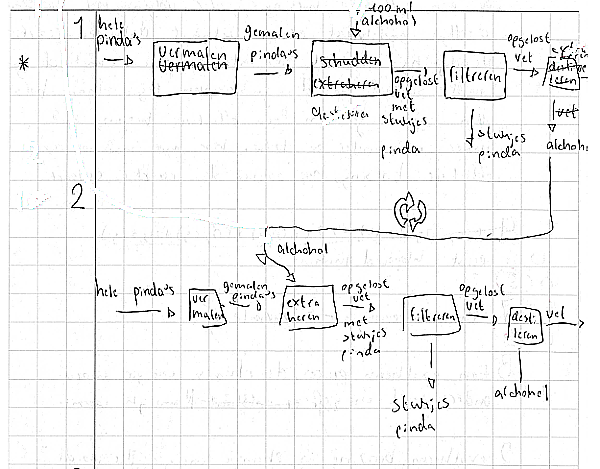 1
hele
pinda's
*
vermalen
vermalen
gemalen
pinda's
100 ml
alchohol
schudden
extraheren
opgelost
vet
met
stukjes
pinda
filtreren
stukjes
pinda
opgelost
vet
desti
leren
vet
alchohol
2
alchohol
hele pinda's
ver
malen
gemalen
pinda's
extra
heren
opgelost
vet
met
stukjes
pinda
filtreren
stukjes
pinda
opgelost
vet
desti
leren
vet
alchohol